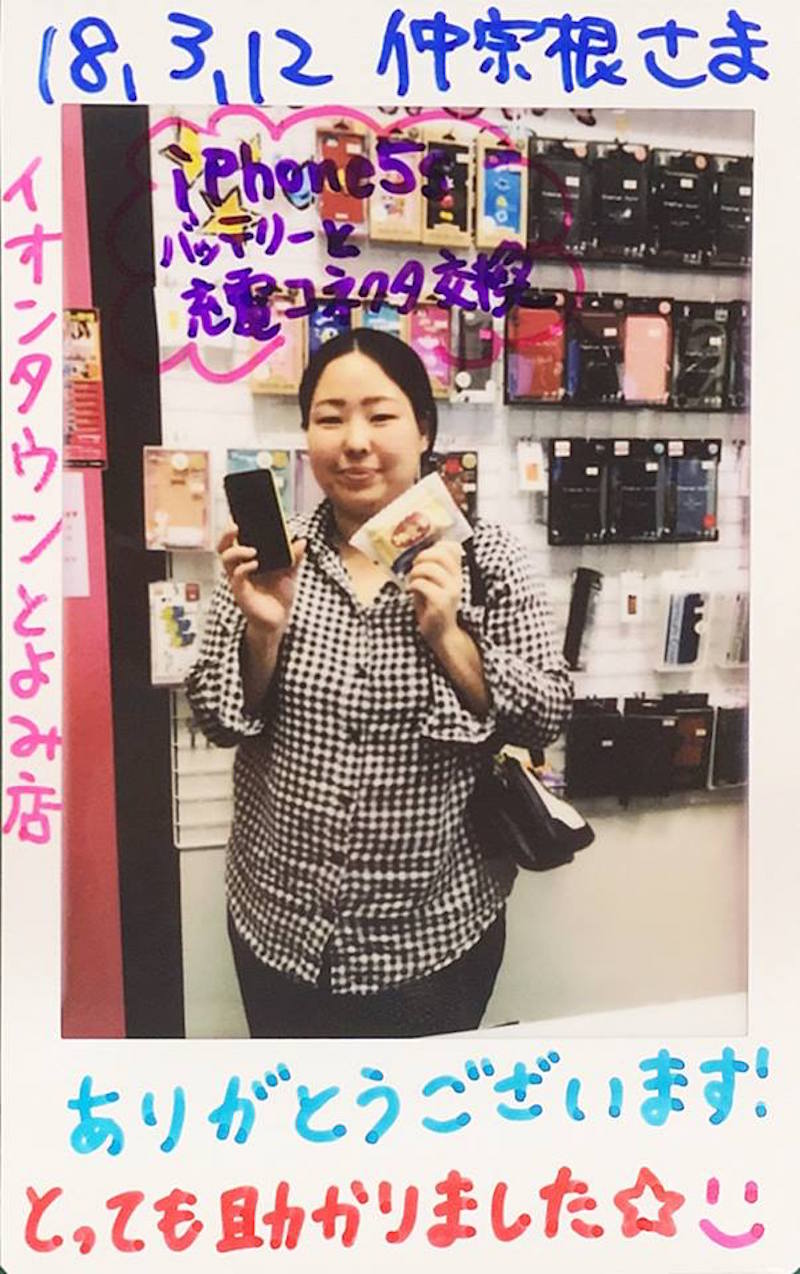 18,3,12 仲宗根さま
イオンタウンとよみ店
iPhone5s
バッテリーと
充電コネクタ交換
ありがとうございます!
とっても助かりました☆